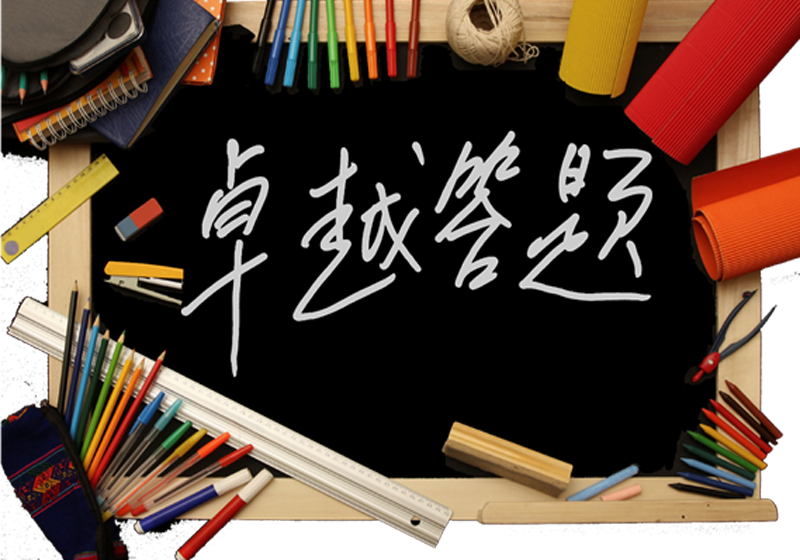 卓越答题